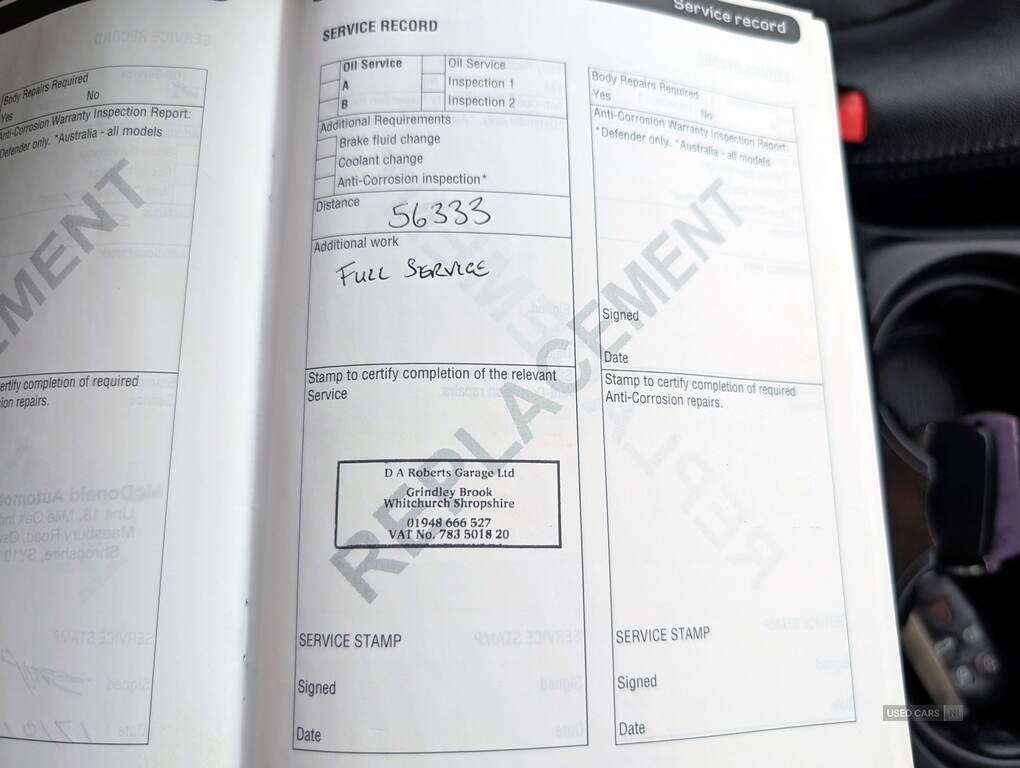 Service record
Body Repairs Required
Yes No
Anti-Corrosion Warranty Inspection Report:
Defender only. *Australia - all models
REPLACEMENT
ertify completion of required
ion repairs.
SERVICE RECORD
Oil Service
A
B
Oil Service
Inspection 1
Inspection 2
Additional Requirements
Brake fluid change
Coolant change
Anti-Corrosion inspection*
Distance
56333
Additional work
FULL SERVICE
Stamp to certify completion of the relevant
Service
D A Roberts Garage Ltd
Grindley Brook
Whitchurch Shropshire
01948 666 527
VAT No. 783 5018 20
SERVICE STAMP
Signed
Date
REPLACEMENT
Body Repairs Required
Yes No
Anti-Corrosion Warranty Inspection Report:
*Defender only. *Australia - all models
Signed
Date
Stamp to certify completion of required
Anti-Corrosion repairs.
SERVICE STAMP
Signed
Date
USED CARS NI